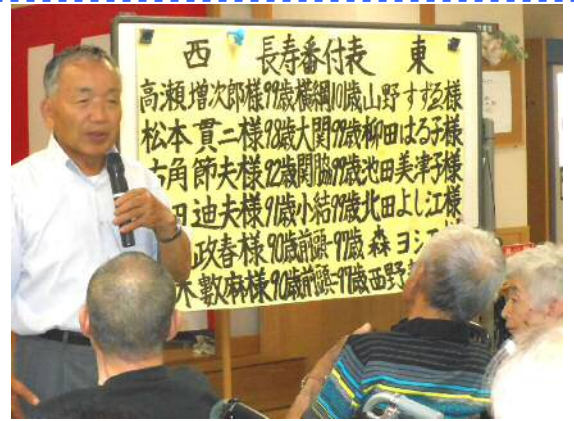 西 長寿番付表 東
高瀬増次郎様99歳横綱101歳山野すずゑ様
松本貫二様98歳大関99歳柳田はる子様
角節夫様92歳関脇99歳池田美津子様
田迪夫様91歳小結99歳北田よし江様
政春様90歳前頭一97歳森ヨシ
木數麻様90歳前頭一97歳西野